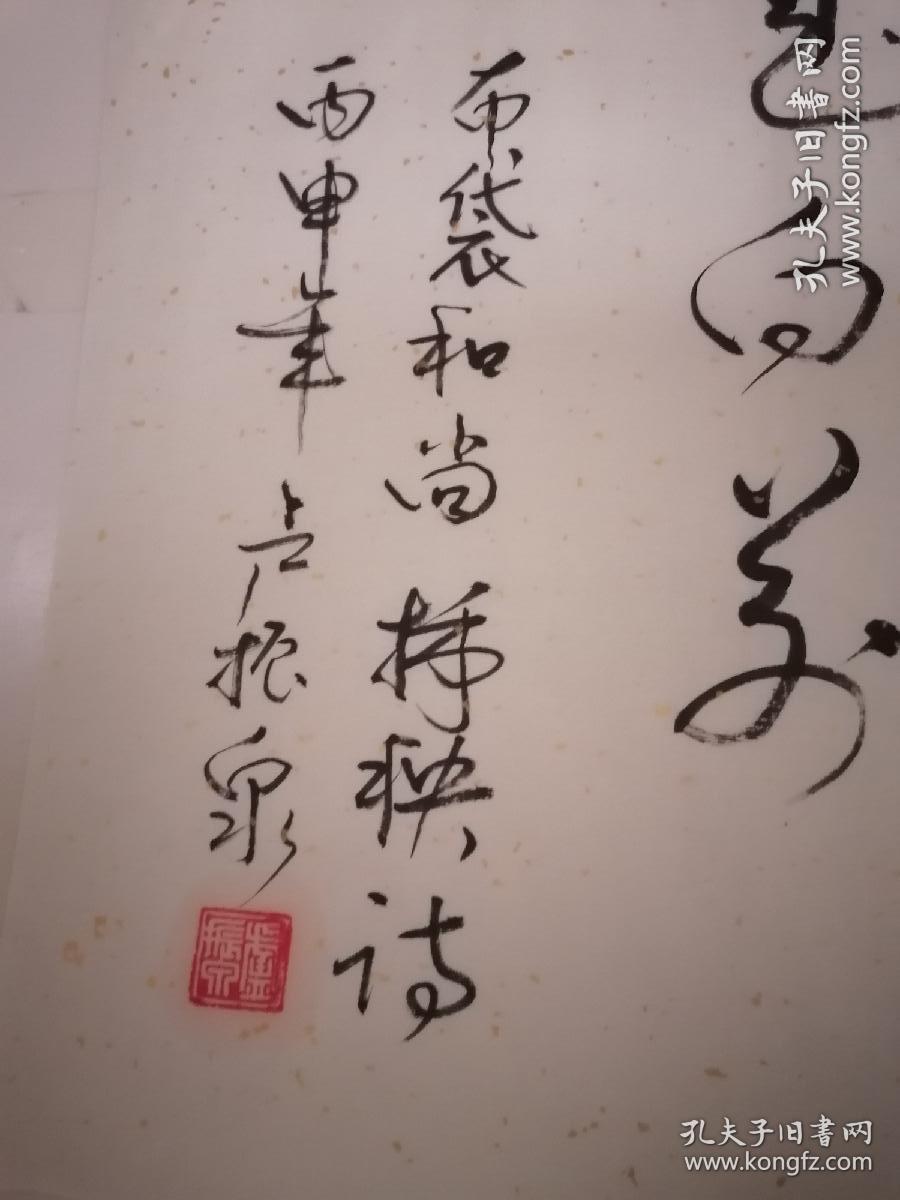 是向前
布袋和尚 插秧诗
丙申年 卢振泉
卢振泉
孔夫子旧书网
www.kongfz.com
孔夫子旧书网
www.kongfz.com